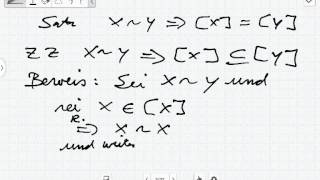 Satz X ~ Y ⇒ [X] = [Y]
ZZ X ~ Y ⇒ [X] ⊆ [Y]
Beweis: Sei X ~ Y und
sei X ∈ [X]
R.
⇒ X ~ X
und weiter